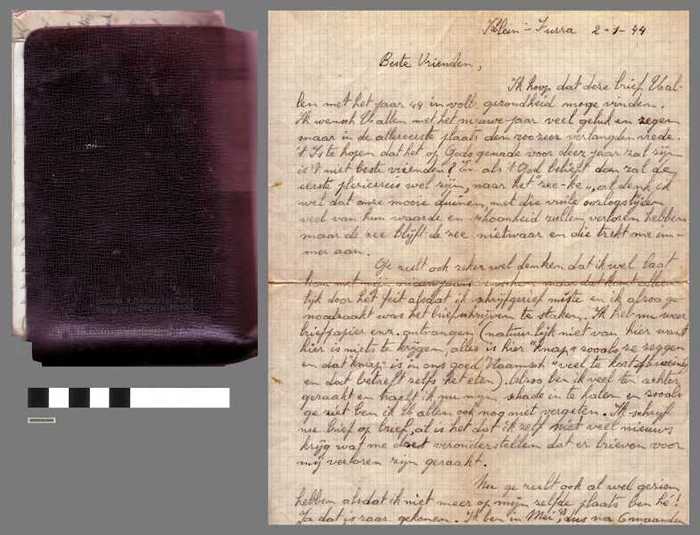 Klein-Furra 2-1-44
Beste Vrienden,
Ik hoop dat deze brief U al-
len met het jaar 44 in volle gezondheid moge vinden.
Ik wensch U allen met het nieuwe jaar veel geluk en zegen
maar in de allereerste plaats den zoozeer verlangden vrede.
't Is te hopen dat het op Gods genade voor deze jaar zal zijn
is 't niet beste vrienden? En als 't God belieft dan zal de
eerste plezierreis wel zijn, naar het "zee-ke", al denk ik
wel dat onze mooie duinen, met die vuile oorlogstijden
veel van hun waarde en schoonheid zullen verloren hebben
maar de zee blijft de zee nietwaar en die trekt me im-
mer aan.
Ge zult ook zeker wel denken dat ik wel laat
kom met mijn nieuwjaars
lijk door het feit alsdat ik schrijfgerief miste en ik alzoo ge-
noodzaakt was het briefschrijven te staken. Ik heb nu weer
briefpapier enz. ontvangen (natuurlijk niet van hier want
hier is niets te krijgen, alles is hier "knap" zooals ze zeggen
en dat "knap" is in ons goed Vlaamsch "veel te kort"
en dat betreft zelfs het eten), alzoo ben ik veel ten achter
geraakt en tracht ik nu mijn schade in te halen en zooals
ge ziet ben ik U allen ook nog niet vergeten. Ik schrijf
nu brief op brief, al is het dat ik zelf niet veel nieuws
krijg wat me doet veronderstellen dat er brieven voor
mij verloren zijn geraakt.
Nu ge zult ook al wel gezien
hebben alsdat ik niet meer op mijn zelfde plaats ben hé!
Ja dat is raar gekomen. Ik ben in Mei, dus na 6 maanden